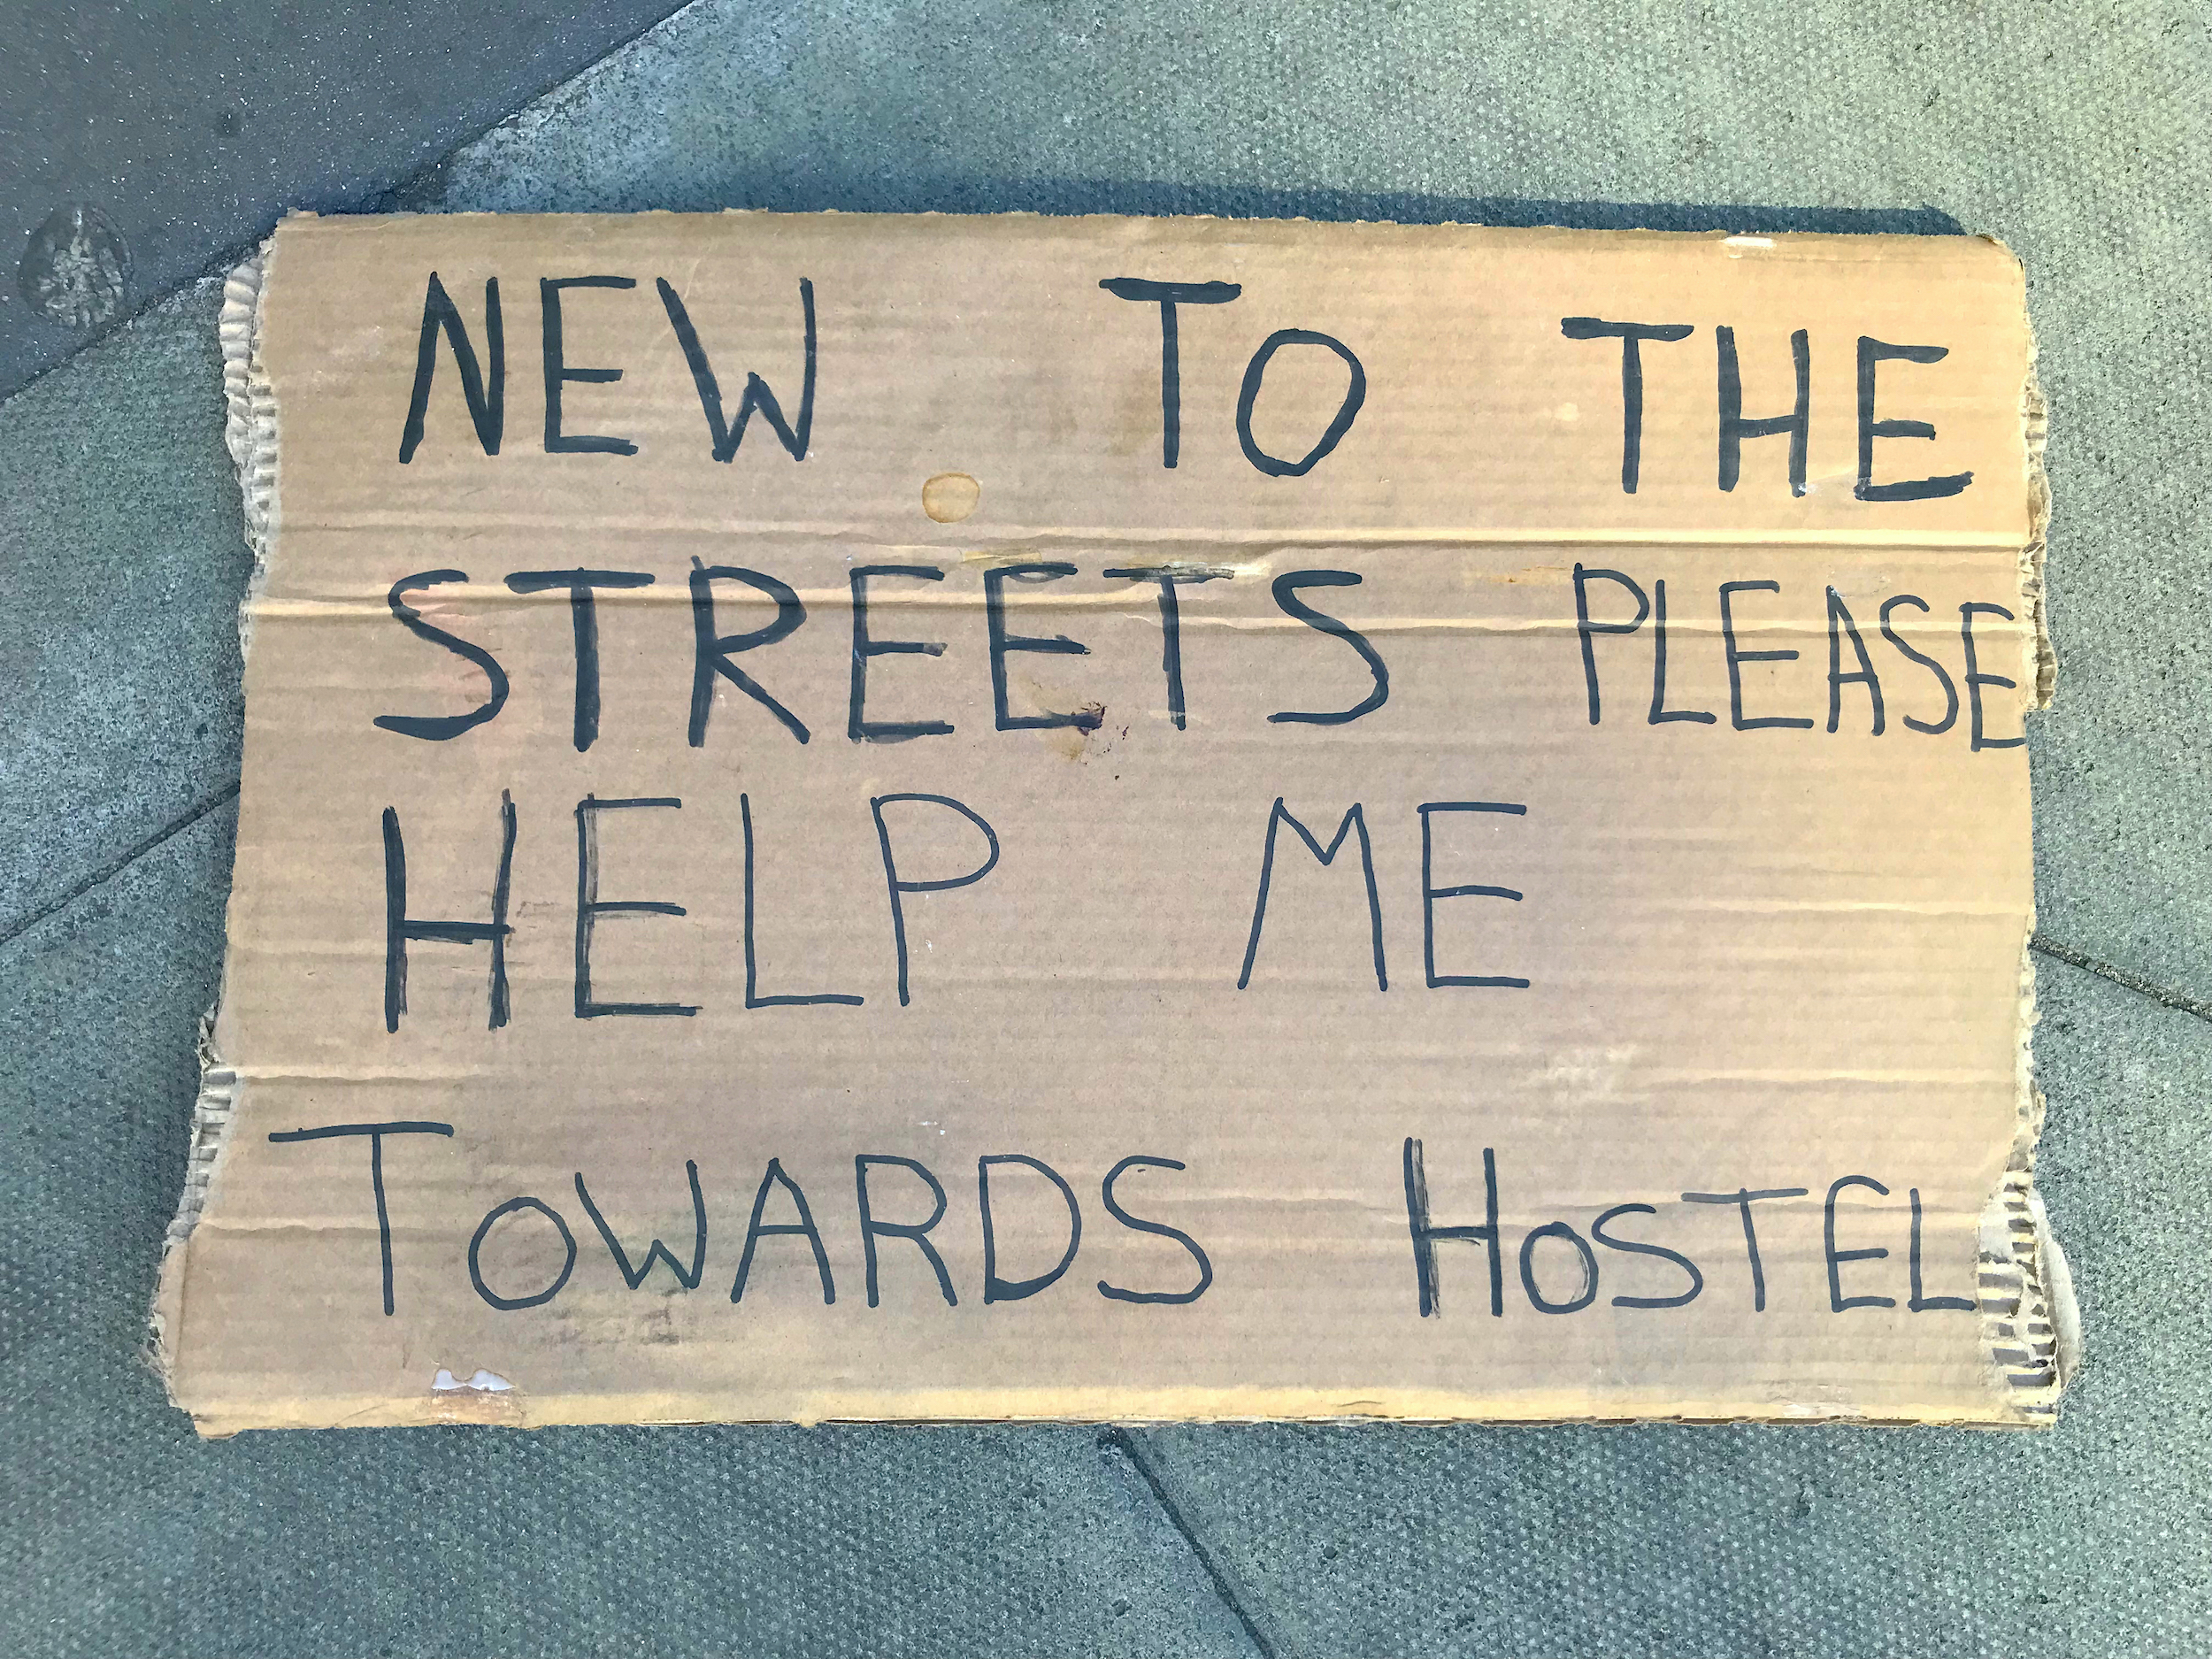 NEW TO THE
STREETS PLEASE
HELP ME
TOWARDS HOSTEL